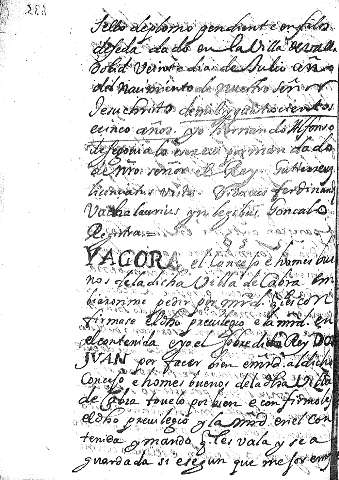 sello de plomo pendiente en filos
de seda dado en la Villa de Valla
dolid veinte dias de Julio año
del nacimiento de nuestro señor
Jesuchristo de mil y quatrocientos
e cinco años. yo hernando Alfonso
de segovia la escrevi por mandado
de nro señor el Rey. Gutierrez
ferdinand
Vachalaurius yn legibus Goncalo
Registra
YAGORA el Concejo e homes bue
nos de la dicha Villa de Cabra em
biaronme pedir por mrd. q. les con
firmase el dho previlegio e la mrd. en
el contenida e yo el sobredicho Rey DON
JUAN por facer bien e mrd. al dicho
Concejo e homes buenos de la dha Villa
de Cabra tovelo por bien e confirmoles
el dho previlegio y la mrd. en el con
tenida y mando q. les vala y sea
guardada si e segun que mejor e mas